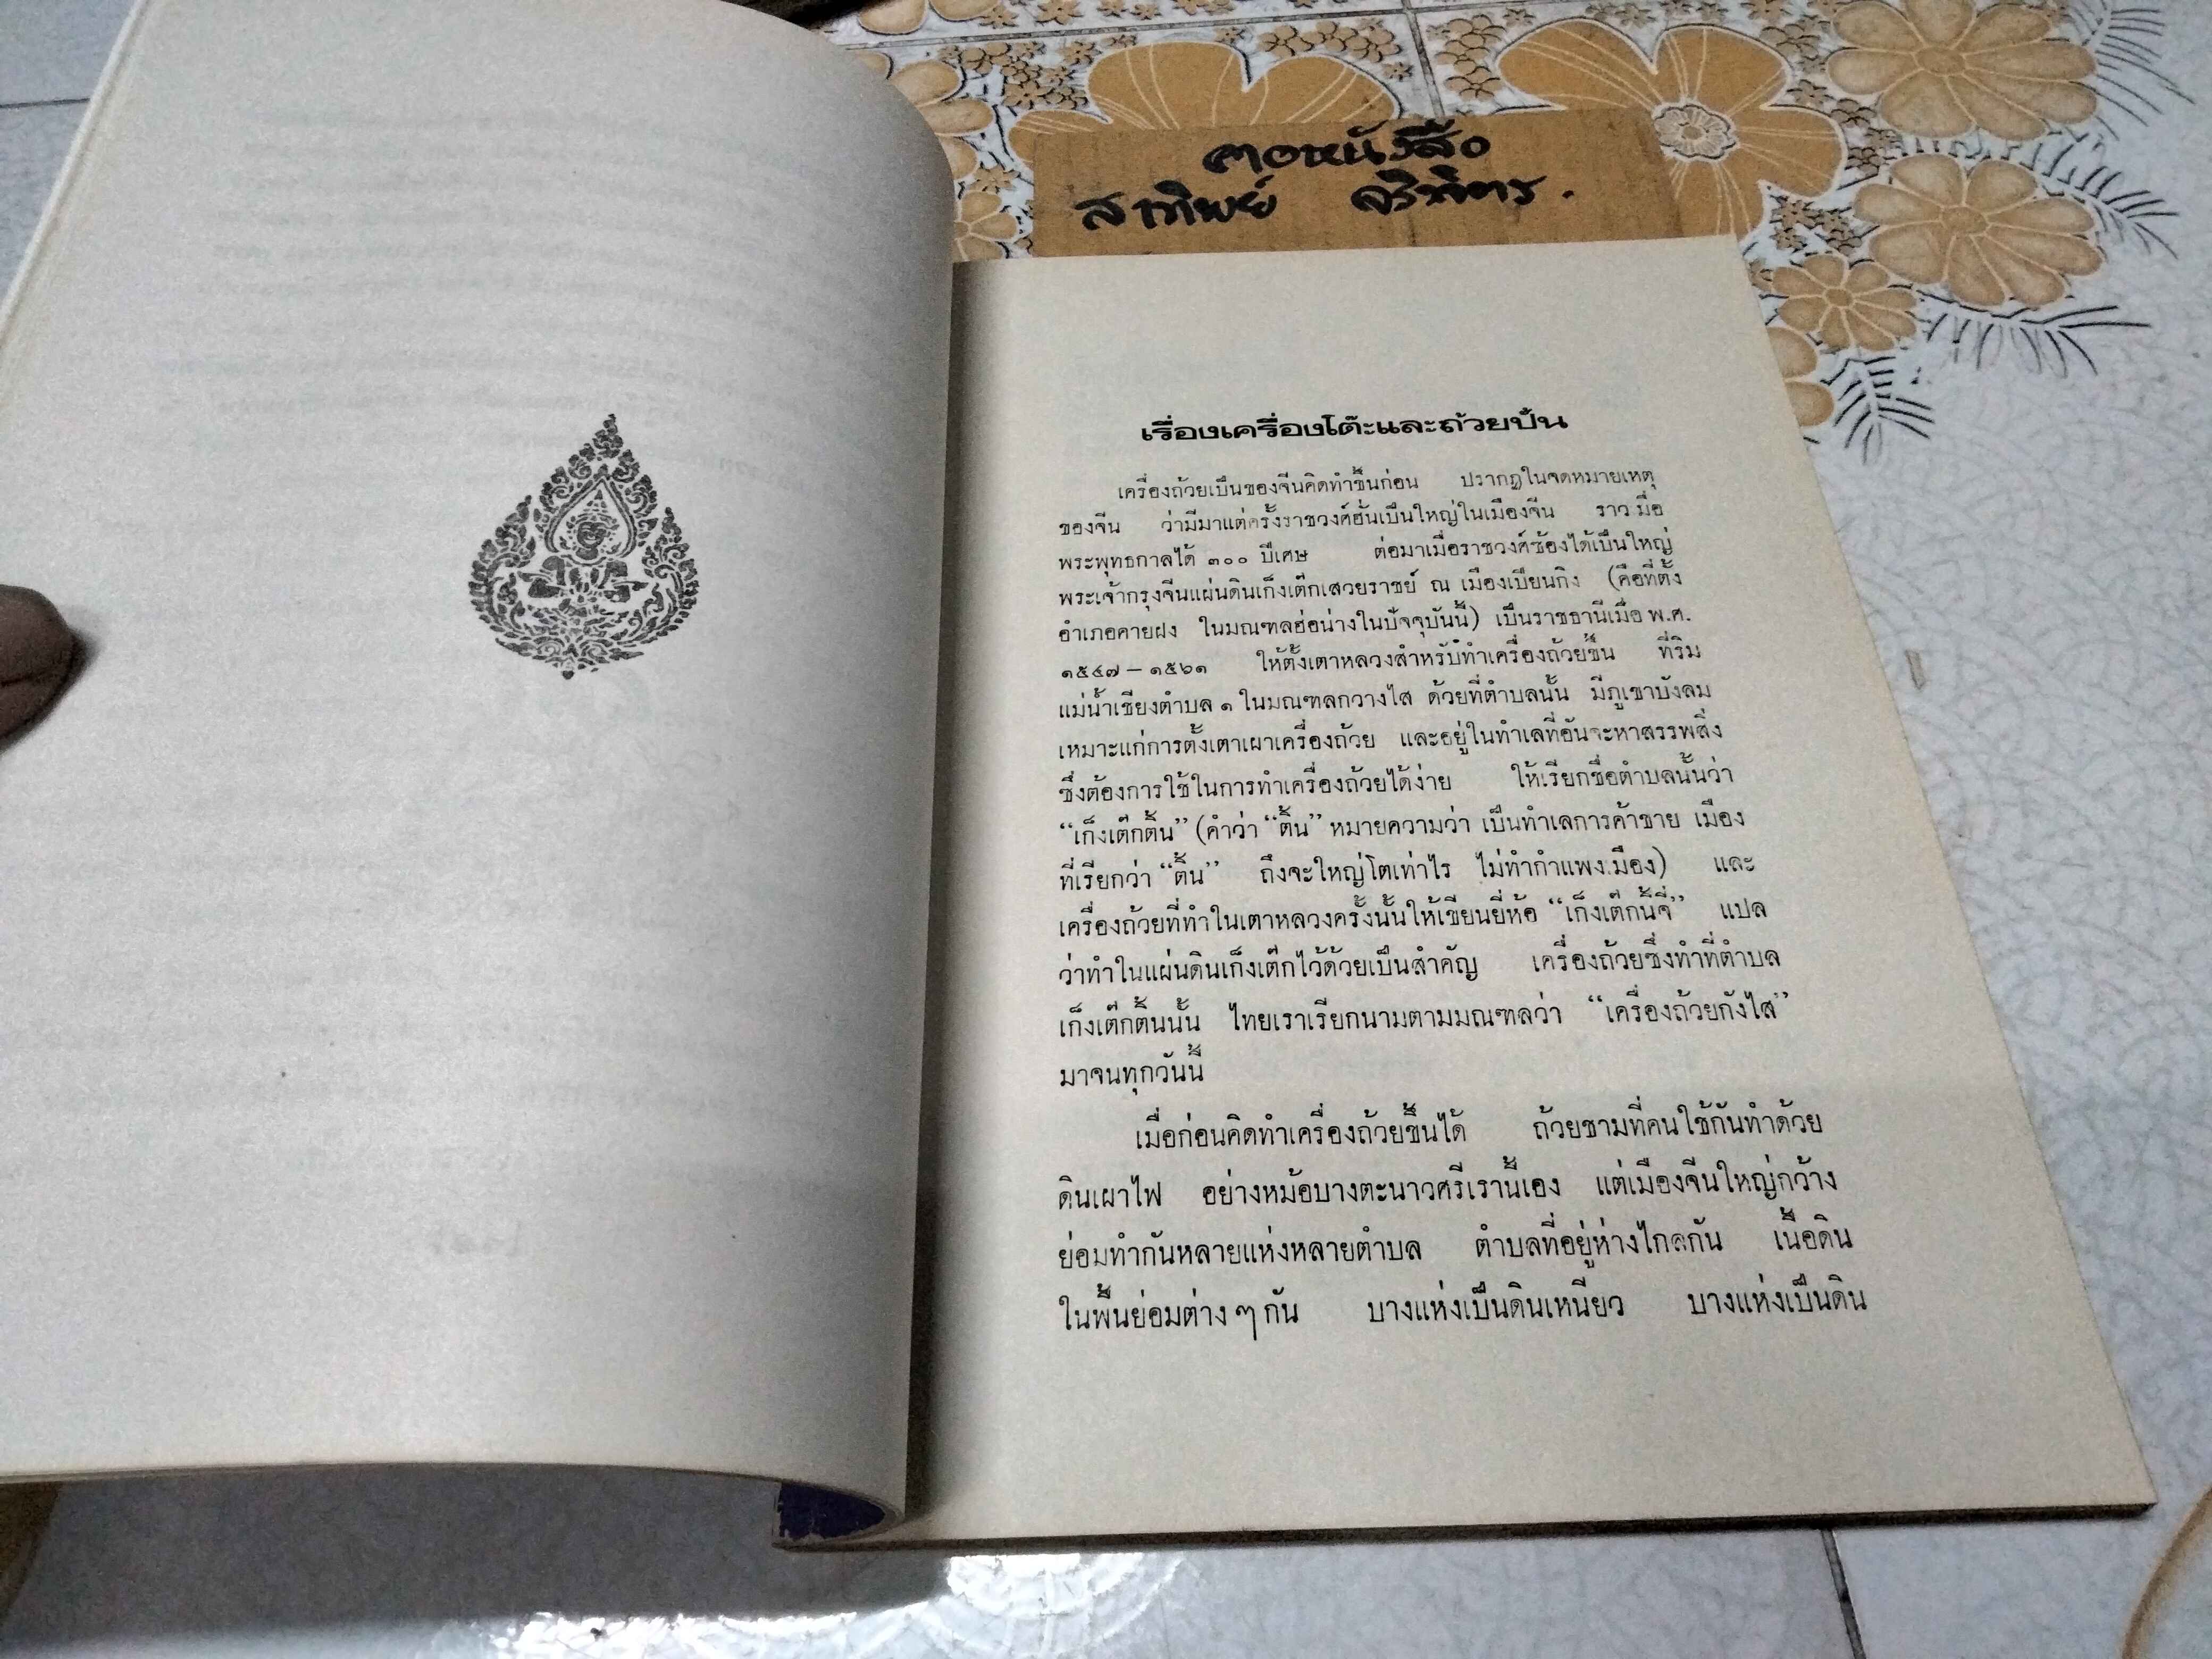 คอหนังสือ
สาทิพย์ จริพิตร.
เรื่องเครื่องโต๊ะและถ้วยปั้น
เครื่องถ้วยเป็นของจีนคิดทำขึ้นก่อน ปรากฏในจดหมายเหตุ
ของจีน ว่ามีมาแต่ครั้งราชวงศ์ฮั่นเป็นใหญ่ในเมืองจีน ราวเมื่อ
พระพุทธกาลได้ ๓๐๐ ปีเศษ ต่อมาเมื่อราชวงศ์ซ้องได้เป็นใหญ่
พระเจ้ากรุงจีนแผ่นดินเก็งเต๊กเสวยราชย์ ณ เมืองเปียนกิง (คือที่ตั้ง
อำเภอคายฝง ในมณฑลฮ่อน่างในปัจจุบันนี้) เป็นราชธานีเมื่อ พ.ศ.
๑๕๔๗ – ๑๕๖๑ ให้ตั้งเตาหลวงสำหรับทำเครื่องถ้วยขึ้น ที่ริม
แม่น้ำเชียงตำบล ๑ ในมณฑลกวางไส ด้วยที่ตำบลนั้น มีภูเขาบังลม
เหมาะแก่การตั้งเตาเผาเครื่องถ้วย และอยู่ในทำเลที่อันจะหาสรรพสิ่ง
ซึ่งต้องการใช้ในการทำเครื่องถ้วยได้ง่าย ให้เรียกชื่อตำบลนั้นว่า
“เก็งเต๊กติ้น” (คำว่า “ติ้น” หมายความว่า เป็นทำเลการค้าขาย เมือง
ที่เรียกว่า “ติ้น” ถึงจะใหญ่โตเท่าไร ไม่ทำกำแพงเมือง) และ
เครื่องถ้วยที่ทำในเตาหลวงครั้งนั้นให้เขียนยี่ห้อ “เก็งเต๊กนี้จี่” แปล
ว่าทำในแผ่นดินเก็งเต๊กไว้ด้วยเป็นสำคัญ เครื่องถ้วยซึ่งทำที่ตำบล
เก็งเต๊กติ้นนั้น ไทยเราเรียกนามตามมณฑลว่า “เครื่องถ้วยกังไส”
มาจนทุกวันนี้
เมื่อก่อนคิดทำเครื่องถ้วยขึ้นได้ ถ้วยชามที่คนใช้กันทำด้วย
ดินเผาไฟ อย่างหม้อบางตะนาวศรีเรานี้เอง แต่เมืองจีนใหญ่กว้าง
ย่อมทำกันหลายแห่งหลายตำบล ตำบลที่อยู่ห่างไกลกัน เนื้อดิน
ในพื้นย่อมต่าง ๆ กัน บางแห่งเป็นดินเหนียว บางแห่งเป็นดิน